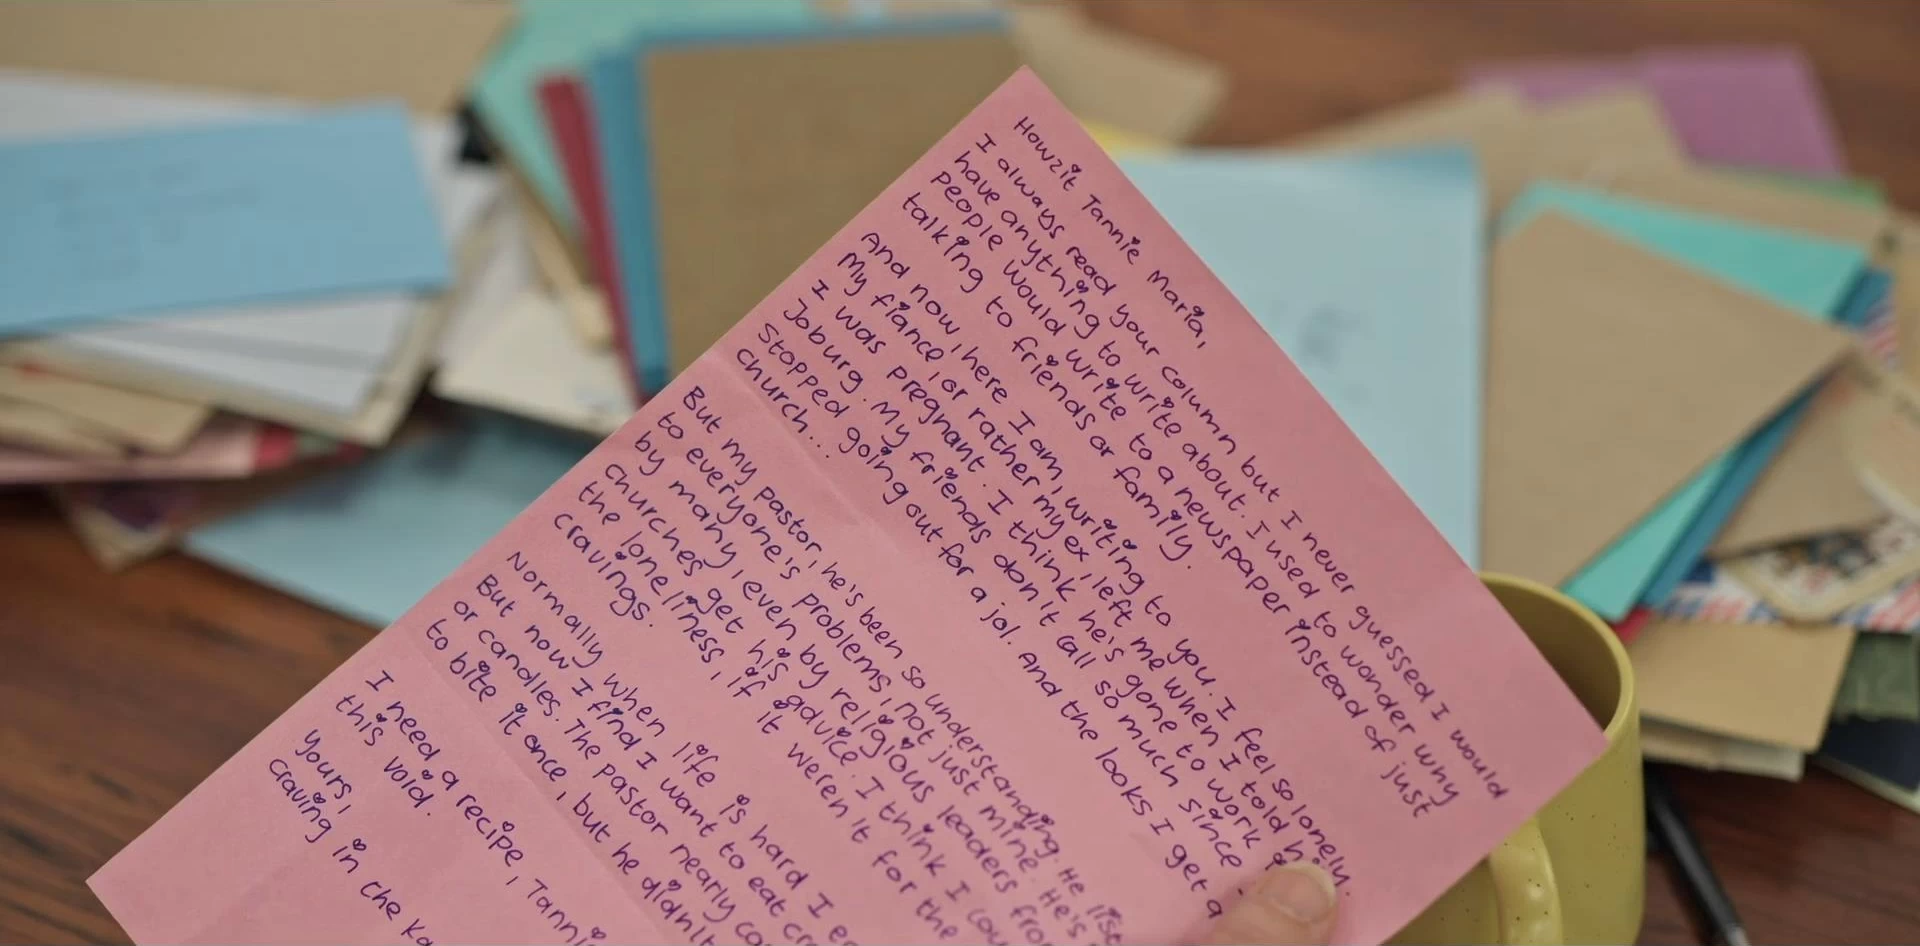 Howzit Tannie Maria,
I always read your column but I never guessed I would
have anything to write about. I used to wonder why
people would write to a newspaper instead of just
talking to friends or family.
And now, here I am, writing to you. I feel so lonely.
My fiance, or rather my ex, left me when I told
I was pregnant. I think he's gone to work
Joburg. My friends don't call so much since
Stopped going out for a jol. And the looks I get a
church...
But my pastor, he's been so understanding. He
to everyone's problems, not just mine. He's
by many, even by religious leaders from
churches get his advice. I think I
the loneliness, if it weren't for the
cravings.
Normally when life is hard I
But now I find I want to eat
or candles. The pastor nearly
to bite it once, but he didn't
I need a recipe, Tannie
this void.
Yours,
Craving in the